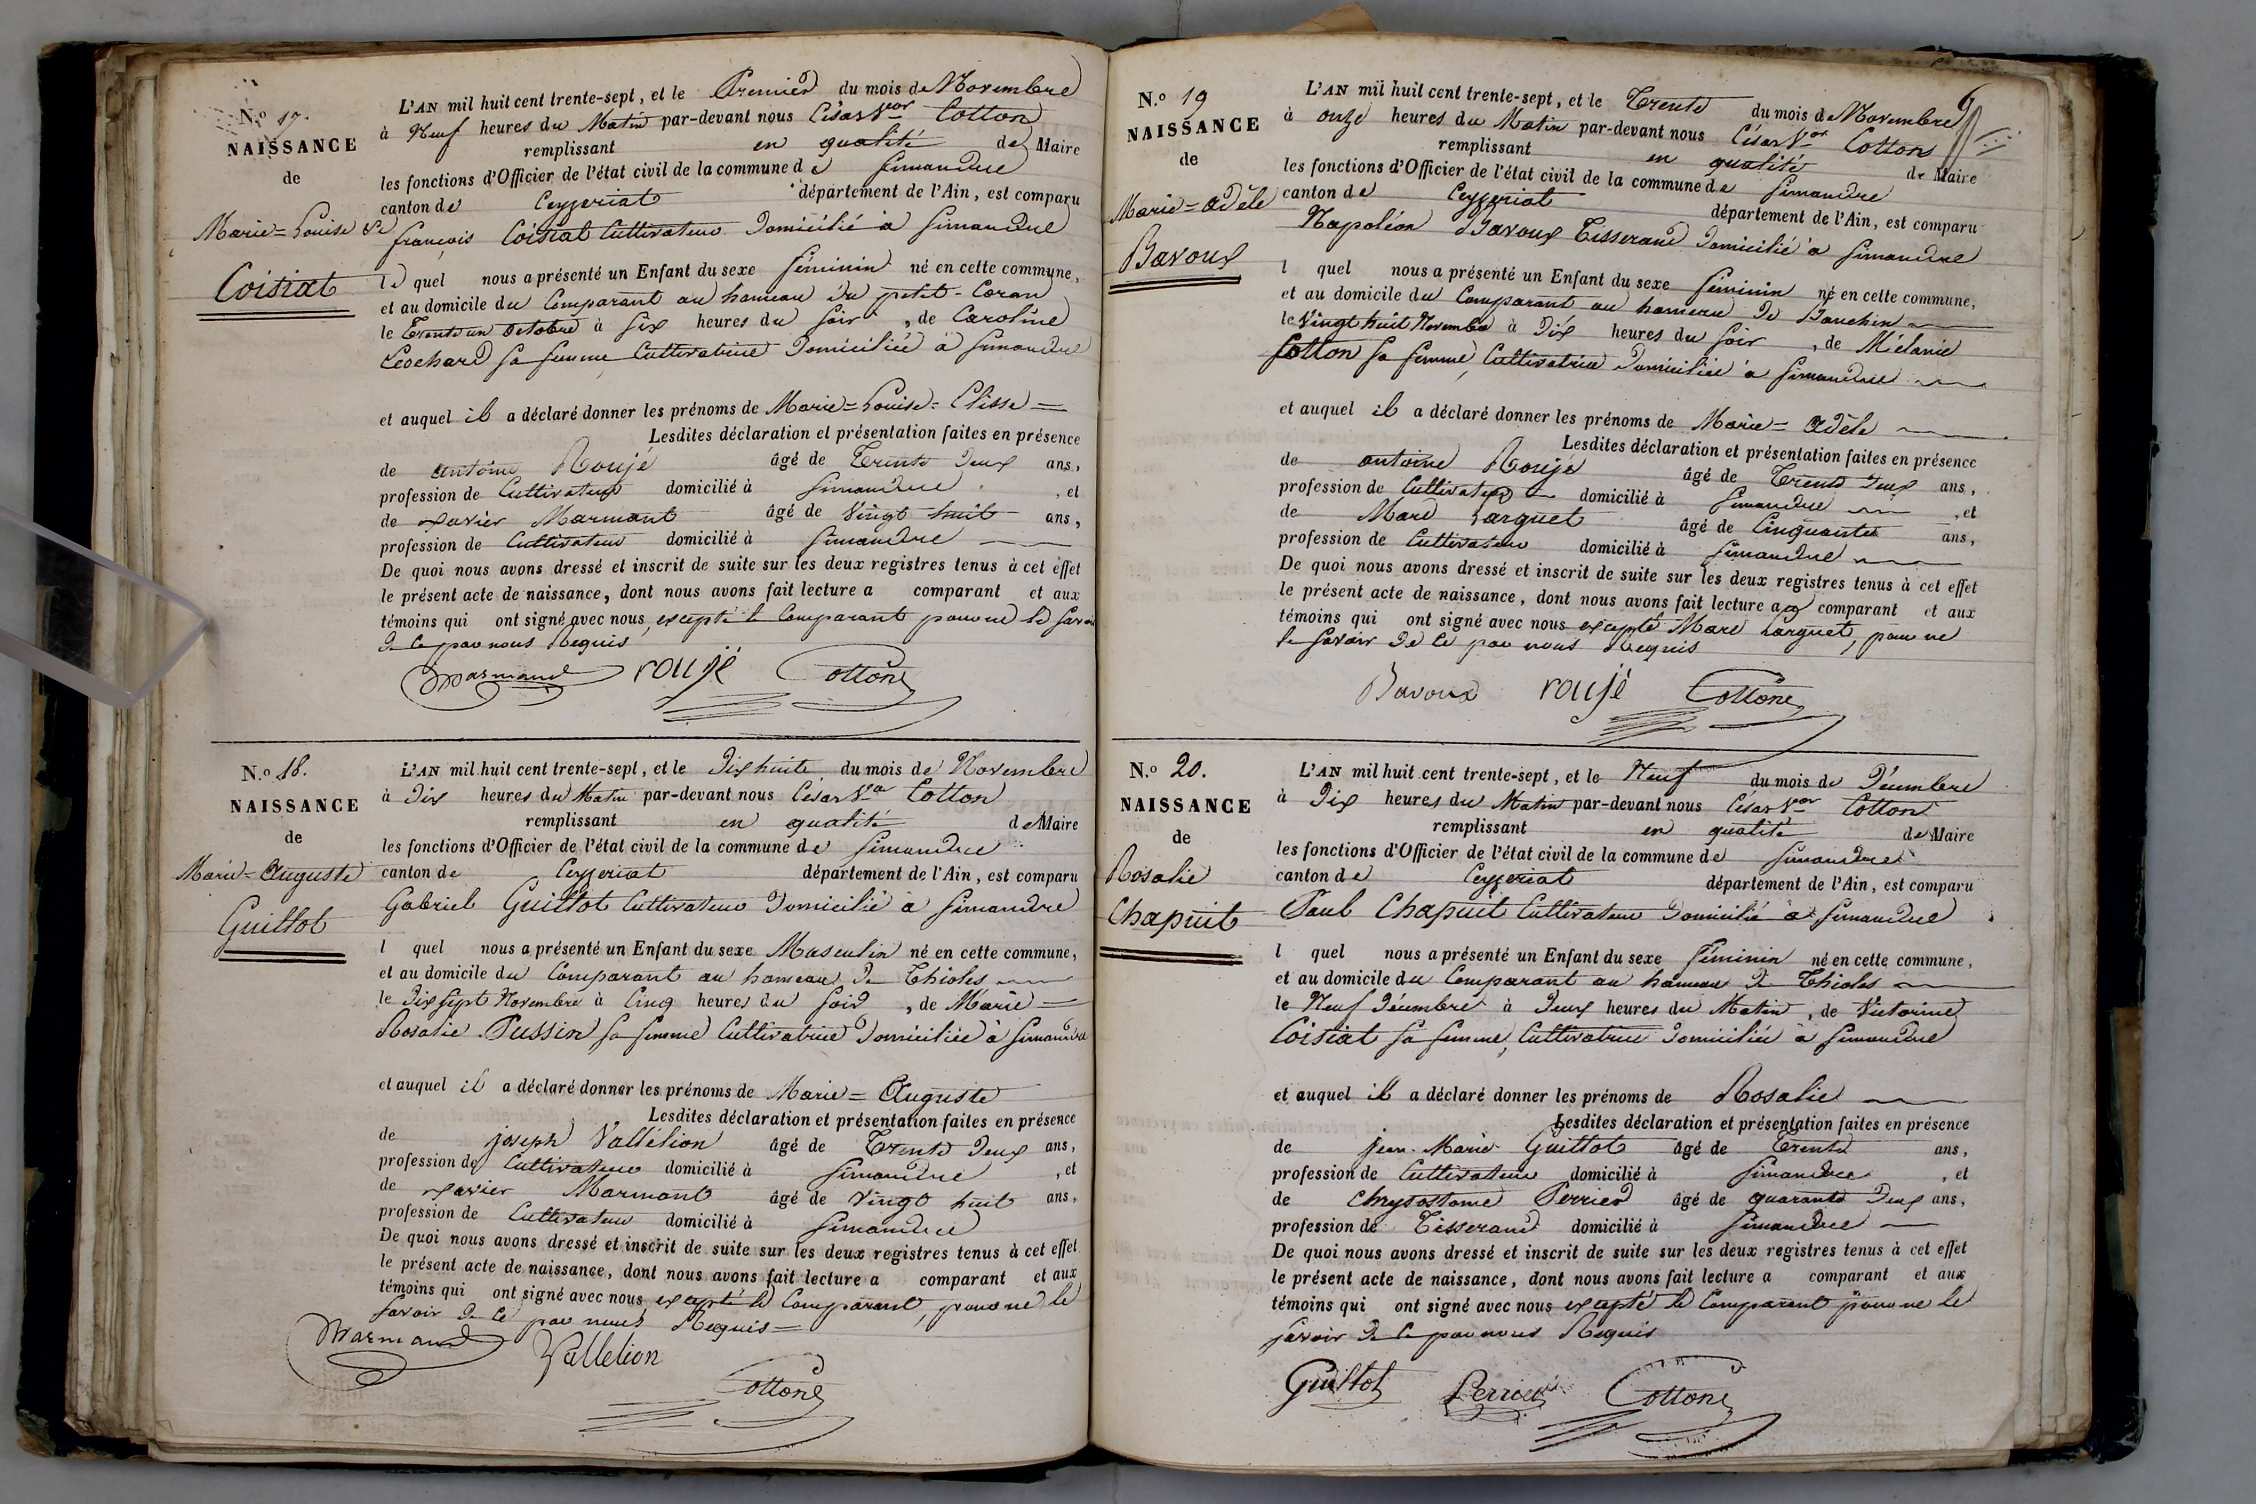 N.º 17.
NAISSANCE
de
Marie=Louise &c
Coisiat
L'AN mil huit cent trente-sept, et le Premier du mois de Novembre
à Neuf heures du Matin par-devant nous César Vor Cotton
remplissant en qualité de Maire
les fonctions d'Officier de l'état civil de la commune de Simandre
canton de Ceyzeriat département de l'Ain, est comparu
françois Coisiat Cultivateur Domicilié à Simandre
le quel nous a présenté un Enfant du sexe féminin né en cette commune,
et au domicile du Comparant au hameau du petit-Coran
le Trente un Octobre à Six heures du Soir, de Caroline
Lochard sa femme, Cultivatrice Domiciliée à Simandre
et auquel il a déclaré donner les prénoms de Marie=Louise=Elisse=
Lesdites déclaration et présentation faites en présence
de antoine Roujé âgé de Trente Deux ans,
profession de Cultivateur domicilié à Simandre, et
de xavier Marmont âgé de Vingt huit ans,
profession de Cultivateur domicilié à Simandre
De quoi nous avons dressé et inscrit de suite sur les deux registres tenus à cet effet
le présent acte de naissance, dont nous avons fait lecture a comparant et aux
témoins qui ont signé avec nous, excepté le Comparant pour ne le savoir
De ce par nous Requis
Marmand roujé Cottone
N.º 18.
NAISSANCE
de
Marie=Auguste
Guillot
L'AN mil huit cent trente-sept, et le Dix huite du mois de Novembre
à Dix heures du Matin par-devant nous César Vor Cotton
remplissant en qualité de Maire
les fonctions d'Officier de l'état civil de la commune de Simandre
canton de Ceyzeriat département de l'Ain, est comparu
Gabriel Guillot Cultivateur Domicilié à Simandre
l quel nous a présenté un Enfant du sexe Masculin né en cette commune,
et au domicile du Comparant au hameau De Thioles
le Dix sept Novembre à Cinq heures du Soir, de Marie=
Rosalie Pussin sa femme Cultivatrice Domiciliée à Simandre
et auquel il a déclaré donner les prénoms de Marie=Auguste
Lesdites déclaration et présentation faites en présence
de joseph Vallélion âgé de Trente Deux ans,
profession de Cultivateur domicilié à Simandre, et
de xavier Marmont âgé de Vingt huit ans,
profession de Cultivateur domicilié à Simandre
De quoi nous avons dressé et inscrit de suite sur les deux registres tenus à cet effet
le présent acte de naissance, dont nous avons fait lecture a comparant et aux
témoins qui ont signé avec nous, excepté le Comparant, pour ne le
savoir De ce par nous Requis=
Marmand Vallelion
Cottone
N.º 19
NAISSANCE
de
Marie=Adèle
Bavoux
L'AN mil huit cent trente-sept, et le Trente du mois de Novembre
à onze heures du Matin par-devant nous César Vor Cotton
remplissant en qualité de Maire
les fonctions d'Officier de l'état civil de la commune de Simandre
canton de Ceyzeriat département de l'Ain, est comparu
Napoléon Bavoux Tisserand Domicilié à Simandre
l quel nous a présenté un Enfant du sexe féminin né en cette commune,
et au domicile du Comparant au hameau De Banchin
le Vingt huit Novembre à Dix heures du Soir, de Mélanie
Cotton sa femme, Cultivatrice Domiciliée à Simandre
et auquel il a déclaré donner les prénoms de Marie=Adèle
Lesdites déclaration et présentation faites en présence
de antoine Roujé âgé de Trente Deux ans,
profession de Cultivateur domicilié à Simandre, et
de Marc Larguet âgé de Cinquante ans,
profession de Cultivateur domicilié à Simandre
De quoi nous avons dressé et inscrit de suite sur les deux registres tenus à cet effet
le présent acte de naissance, dont nous avons fait lecture au comparant et aux
témoins qui ont signé avec nous excepté Marc Larguet, pour ne
le savoir De ce par nous Requis
Bavoux roujé Cottone
N.º 20.
NAISSANCE
de
Rosalie
Chapuit
L'AN mil huit cent trente-sept, et le Neuf du mois de Décembre
à Dix heures du Matin par-devant nous César Vor Cotton
remplissant en qualité de Maire
les fonctions d'Officier de l'état civil de la commune de Simandre
canton de Ceyzeriat département de l'Ain, est comparu
Paul Chapuit Cultivateur Domicilié à Simandre
l quel nous a présenté un Enfant du sexe Féminin né en cette commune,
et au domicile du Comparant au hameau De Thioles
le Neuf Décembre à Deux heures du Matin, de Victorine
Coisiat sa femme, Cultivatrice Domiciliée à Simandre
et auquel il a déclaré donner les prénoms de Rosalie
Lesdites déclaration et présentation faites en présence
de jean-Marie Guillot âgé de Trente ans,
profession de Cultivateur domicilié à Simandre, et
de Chrysostome Perrier âgé de quarante Deux ans,
profession de Tisserand domicilié à Simandre
De quoi nous avons dressé et inscrit de suite sur les deux registres tenus à cet effet
le présent acte de naissance, dont nous avons fait lecture a comparant et aux
témoins qui ont signé avec nous excepté le Comparant pour ne le
savoir De ce par nous Requis
Guillot Perrier Cottone